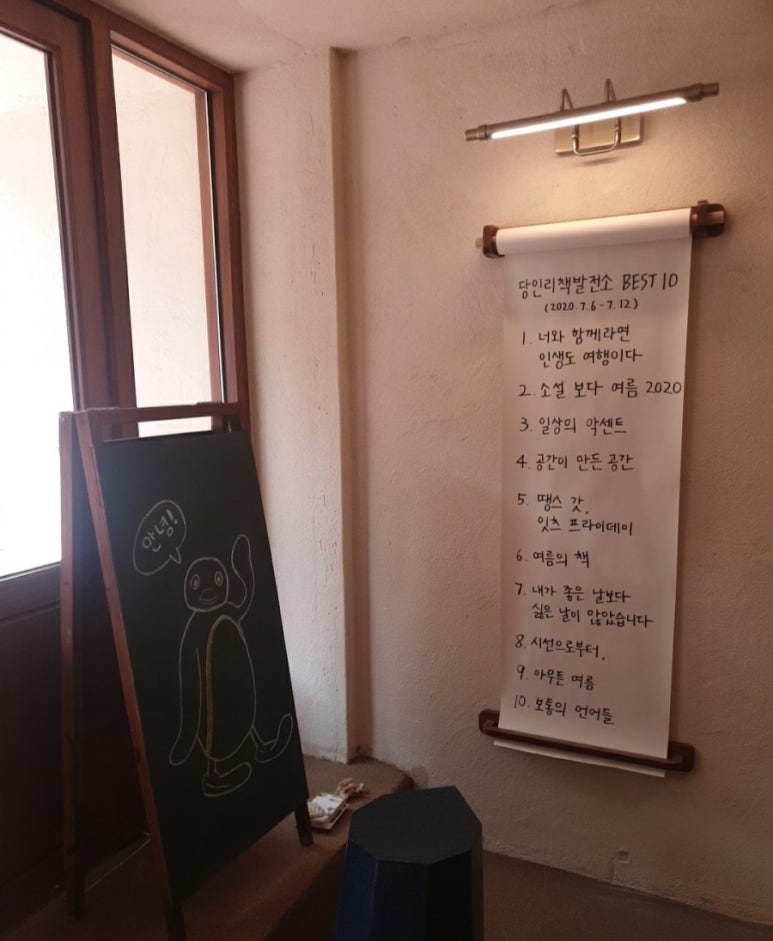 안녕!
당인리책발전소 BEST 10
(2020.7.6 - 7.12)
1. 너와 함께라면
인생도 여행이다
2. 소설 보다 여름 2020
3. 일상의 악센트
4. 공간이 만든 공간
5. 땡스 갓,
잇츠 프라이데이
6. 여름의 책
7. 내가 좋은 날보다
싫은 날이 많았습니다
8. 시선으로부터,
9. 아무튼 여름
10. 보통의 언어들